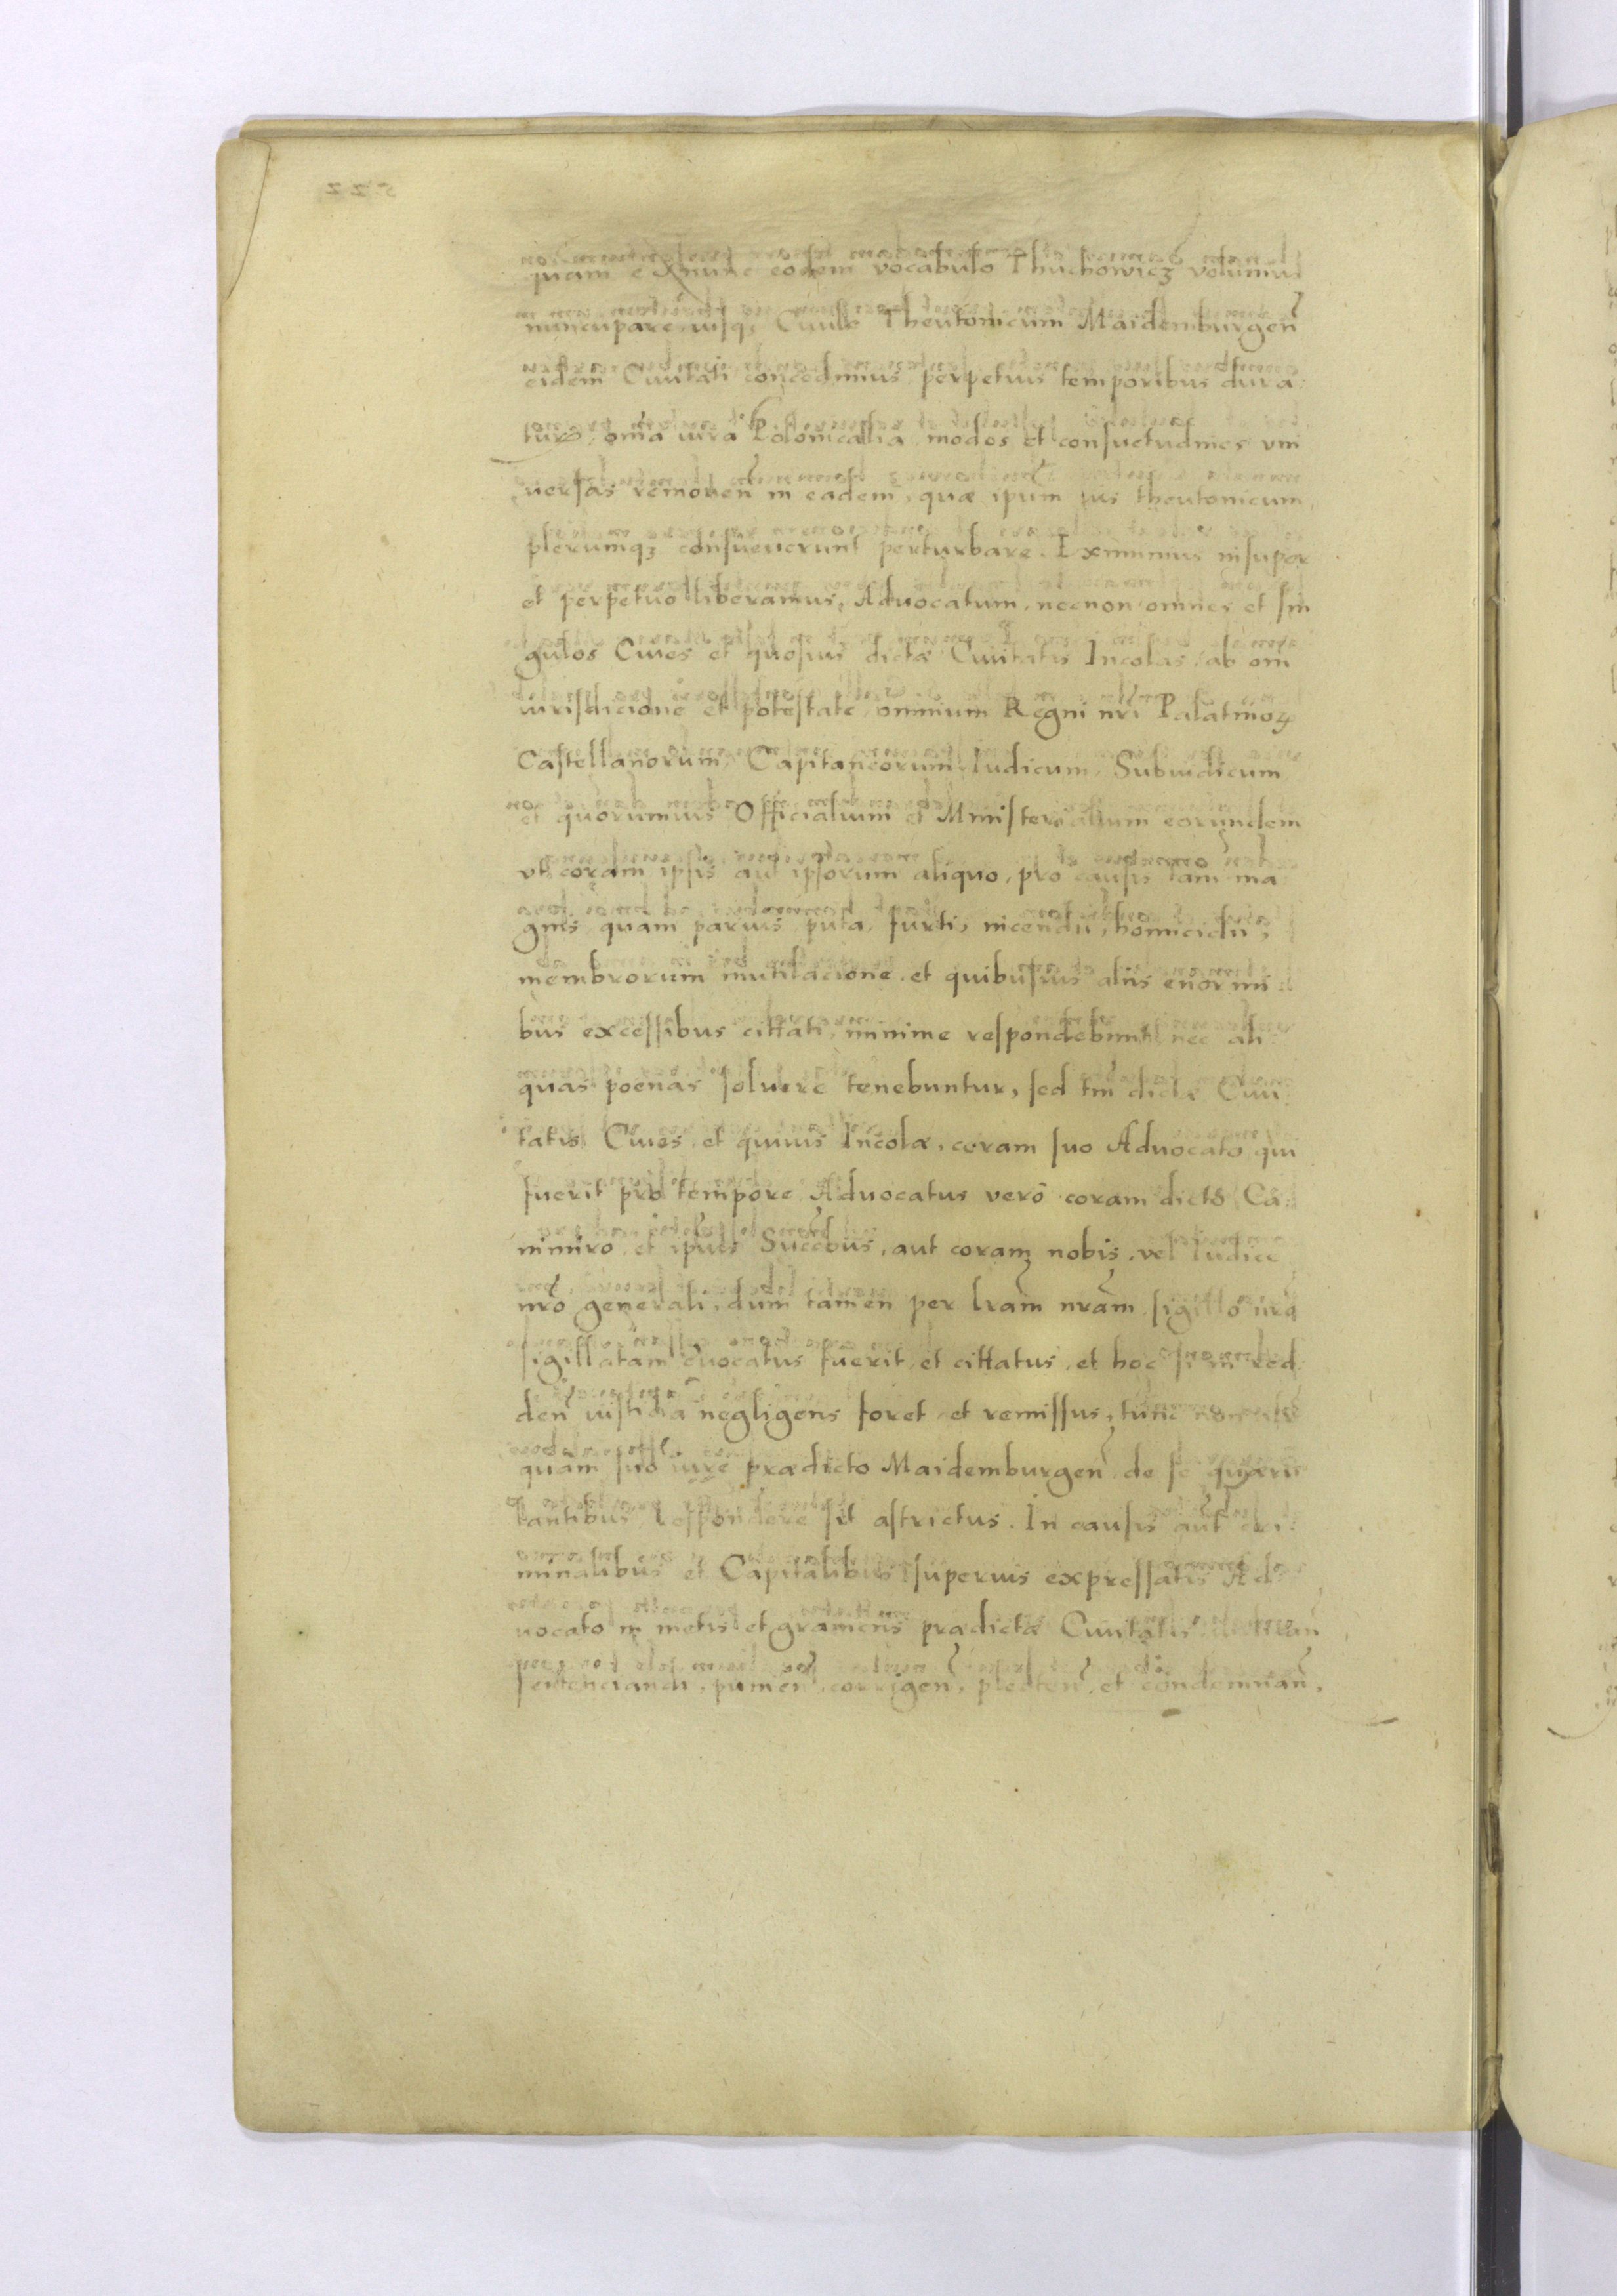 quam exnunc eodem vocabulo Thuchowicz volumus
nuncupare, iusq; Ciuile Theutonicum Maidemburgeñ
eidem Ciuitati concedimus perpetuis temporibus dura
tur, om̃ia iura Polonicalia modos et consuetudines vni
uersas remoueñ in eadem, quæ ip̃um ius theutonicum
plerumq; consueuerunt perturbare. Eximimus insuper
et perpetuo liberamus, Aduocatum, necnon omnes et sin
gulos Ciues et quosuis dictæ Ciuitatis Incolas, ab om̃i
iurisdicione et potestate omnium Regni nr̃i Palatinoꝝ
Castellanorum, Capitaneorum, Iudicum, Subiudicum
et quorumuis Officialium et Ministerialium eorundem
vt coram ipsis aut ipsorum aliquo, pro causis tam ma
gnis quam paruis puta, furti, incendii, homicidii,
membrorum mutilacione et quibusuis aliis enormi
bus excessibus cittati, minime respondebunt nec ali
quas poenas soluere tenebuntur, sed tm̃ dictæ Ciui
tatis Ciues et quiuis Incolæ, coram suo Aduocato qui
fuerit pro tempore, Aduocatus vero coram dicto Ca
zimiro et ip̃ius Succ̃bus, aut coram nobis, vel Iudice
nr̃o generali, dum tamen per lr̃am nr̃am sigillo nr̃o
sigillatam euocatus fuerit et cittatus, et hoc si in red
deñ iusticia negligens foret et remissus, tunc non alr̃
quam suo iure prædicto Maidemburgeñ de se quæri
tantibus respondere sit astrictus. In causis aut̃ cri
minalibus et Capitalibus superius expressatis Ad
uocato in metis et graniciis prædictæ Ciuitatis
sentenciandi, punieñ, corrigeñ, plecteñ, et condemnañ,